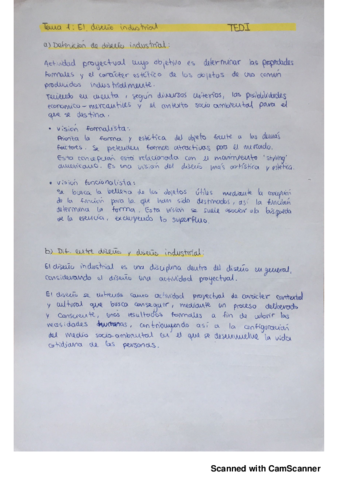 Tema 1: El diseño industrial TEDI
a) Definición de diseño industrial:
Actividad proyectual cuyo objetivo es determinar las propiedades
formales y el carácter estético de los objetos de uso común
producidos industrialmente.
Teniendo en cuenta, según diversos criterios, las posibilidades
económico-mercantiles y el entorno socio ambiental para el
que se destina.
• Visión formalista:
Prioriza la forma y estética del objeto frente a los demás
factores. Se pretenden formas atractivas para el mercado.
Esta concepción está relacionada con el movimiento "styling"
americano. Es una visión del diseño más artística y
• Visión funcionalista:
Se busca la belleza de los objetos útiles mediante la
de la función para la que han sido destinados, así la función
determina la forma. Esta visión se suele
de la esencia, excluyendo lo superfluo.
b) Dif. entre diseño y diseño industrial:
El diseño industrial es una disciplina dentro del diseño en general,
considerando el diseño una actividad proyectual.
El diseño se entiende como actividad proyectual de carácter
y cultural que busca conseguir, mediante un proceso deliberado
y consciente, unos resultados formales a fin de cubrir las
necesidades humanas, contribuyendo así a la configuración
del medio socio-ambiental en el que se desenvuelve la vida
cotidiana de las personas.
Scanned with CamScanner